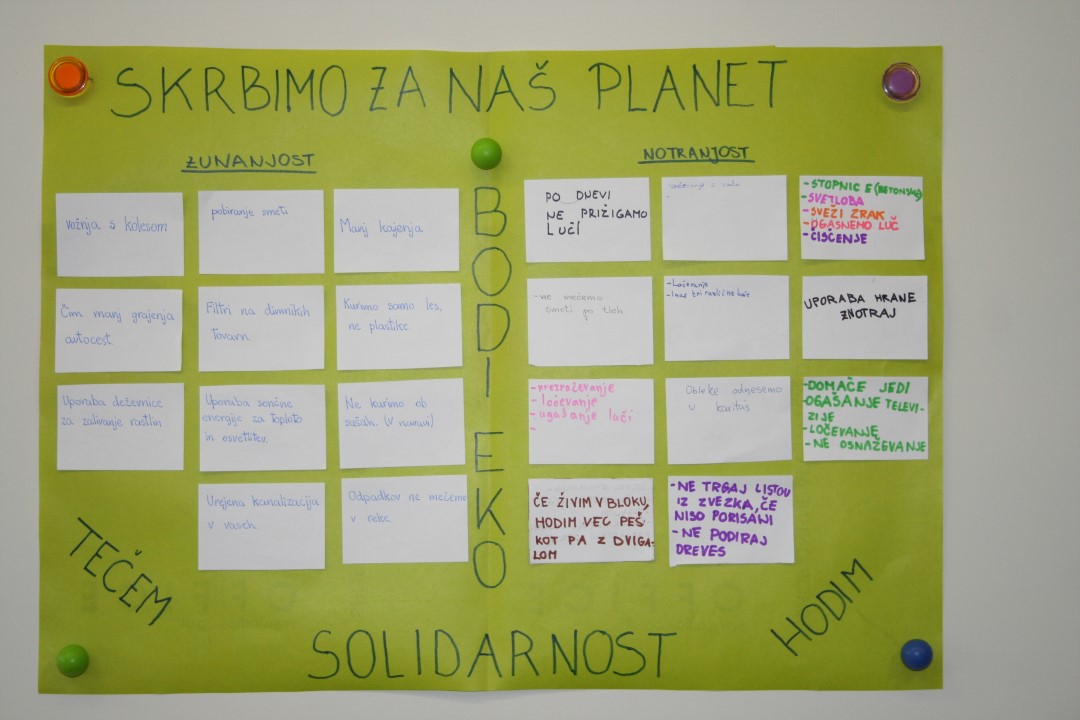 SKRBIMO ZA NAŠ PLANET
ZUNANJOST
vožnja s kolesom
pobiranje smeti
Manj kajenja
Čim manj grajenja
avtocest.
Filtri na dimnikih
tovarn.
Kurimo samo les,
ne plastike.
Uporaba deževnice
za zalivanje rastlin
Uporaba sončne
energije za toploto
in osvetlitev.
Ne kurimo ob
sušah. (v naravi)
Urejena kanalizacija
v vaseh.
Odpadkov ne mečemo
v reke.
BODI EKO
NOTRANJOST
PO DNEVI
NE PRIŽIGAMO
LUČI
-STOPNICE (BETONSKE)
-SVETLOBA
-SVEŽI ZRAK
-UGASNEMO LUČ
-ČIŠČENJE
-ne mečemo
smeti po tleh
-Ločevanje
UPORABA HRANE
ZNOTRAJ
-prezračevanje
-ločevanje
-ugašanje luči
-
Obleke odnesemo
v karitas
-DOMAČE JEDI
-UGAŠANJE TELEVI-
ZIJE
-LOČEVANJE
-NE OSNAŽEVANJE
ČE ŽIVIM V BLOKU,
HODIM VEČ PEŠ
KOT PA Z DVIGA-
LOM
-NE TRGAJ LISTOV
IZ ZVEZKA, ČE
NISO PORISANI
-NE PODIRAJ
DREVES
TEČEM
SOLIDARNOST
HODIM